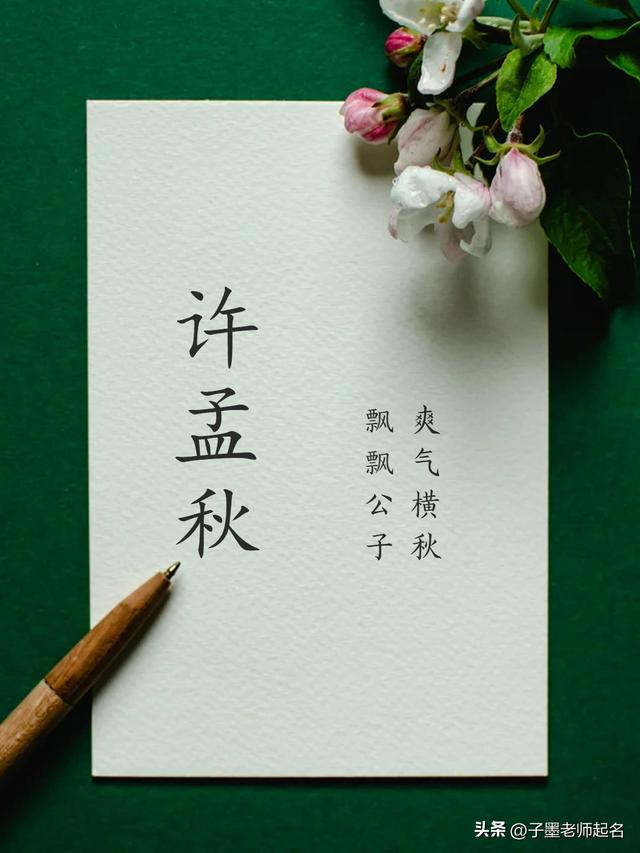 许孟秋
爽气横秋
飘飘公子
头条 @子墨老师起名